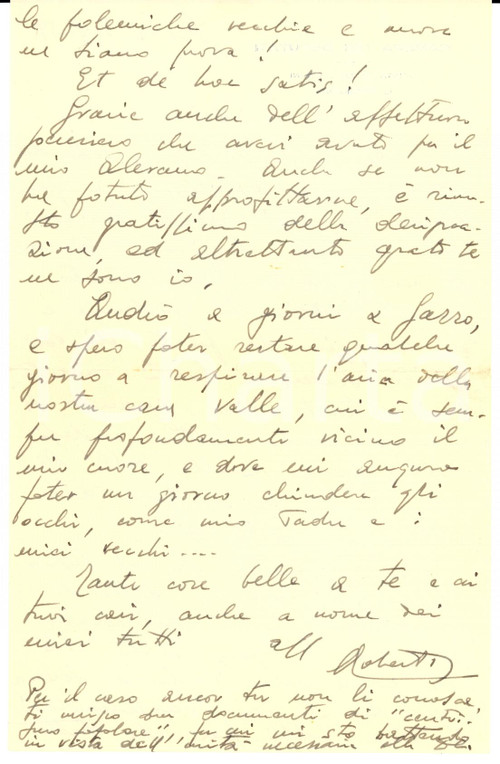 le polemiche vecchie e nuove
ne siano prova!
Et de hoc satis!
Grazie anche dell'affettuoso
pensiero che avevi avuto per il
mio Aleramo. Anche se non
ha potuto approfittarne, è rima-
sto gratissimo della designa-
zione, ed altrettanto grato te
ne sono io.
Andrò a giorni a Gazzo,
e spero poter restare qualche
giorno a respirare l'aria della
nostra cara Valle, cui è sem-
pre profondamente vicino il
mio cuore, e dove mi auguro
poter un giorno chiudere gli
occhi, come mio Padre e i
miei vecchi....
Tante cose belle a te e ai
tuoi cari, anche a nome dei
miei tutti
aff Roberto
Per il caso ancor tu non li conosca
ti unisco due documenti di "centri-
smo popolare", per cui mi sto battendo
in vista dell'unità necessaria alla